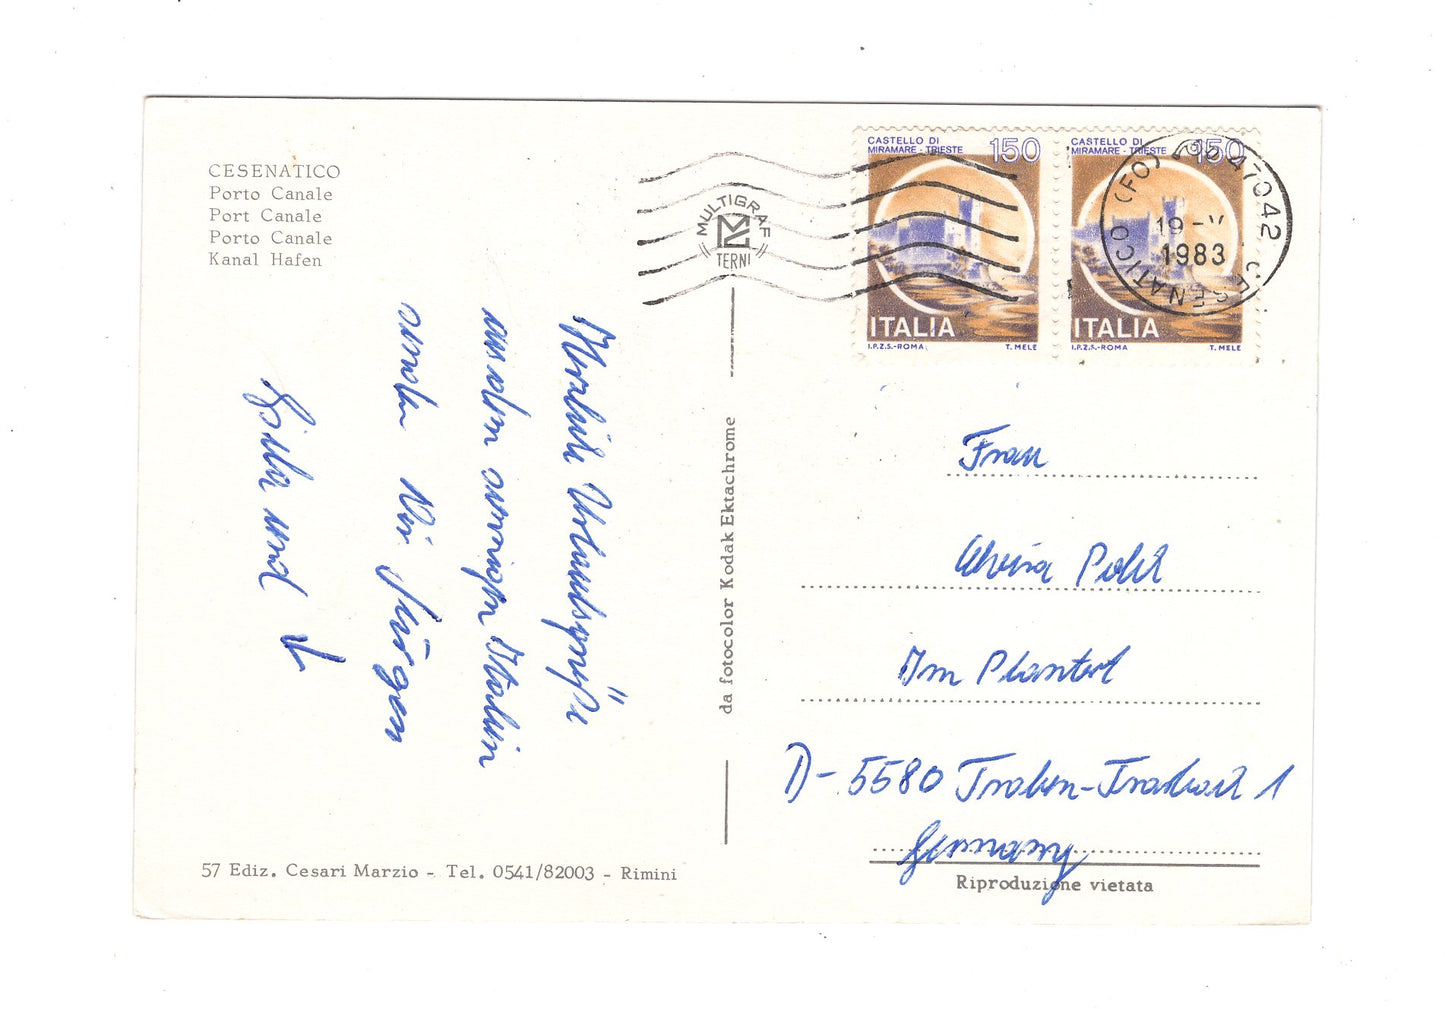 CESENATICO
Porto Canale
Port Canale
Porto Canale
Kanal Hafen
Herzliche Urlaubsgrüße
aus dem sonnigen Italien
senden Dir Jürgen
und
57 Ediz. Cesari Marzio - Tel. 0541/82003 - Rimini
da fotocolor Kodak Ektachrome
MULTIGRAF
TERNI
CASTELLO DI
MIRAMARE - TRIESTE
150
ITALIA
I.P.Z.S.-ROMA T. MELE
CASTELLO DI
MIRAMARE - TRIESTE
150
ITALIA
I.P.Z.S.-ROMA T. MELE
47042 CESENATICO (FO)
19
1983
Frau
Pohl
Im
D-5580 Traben-Trarbach 1
Germany
Riproduzione vietata